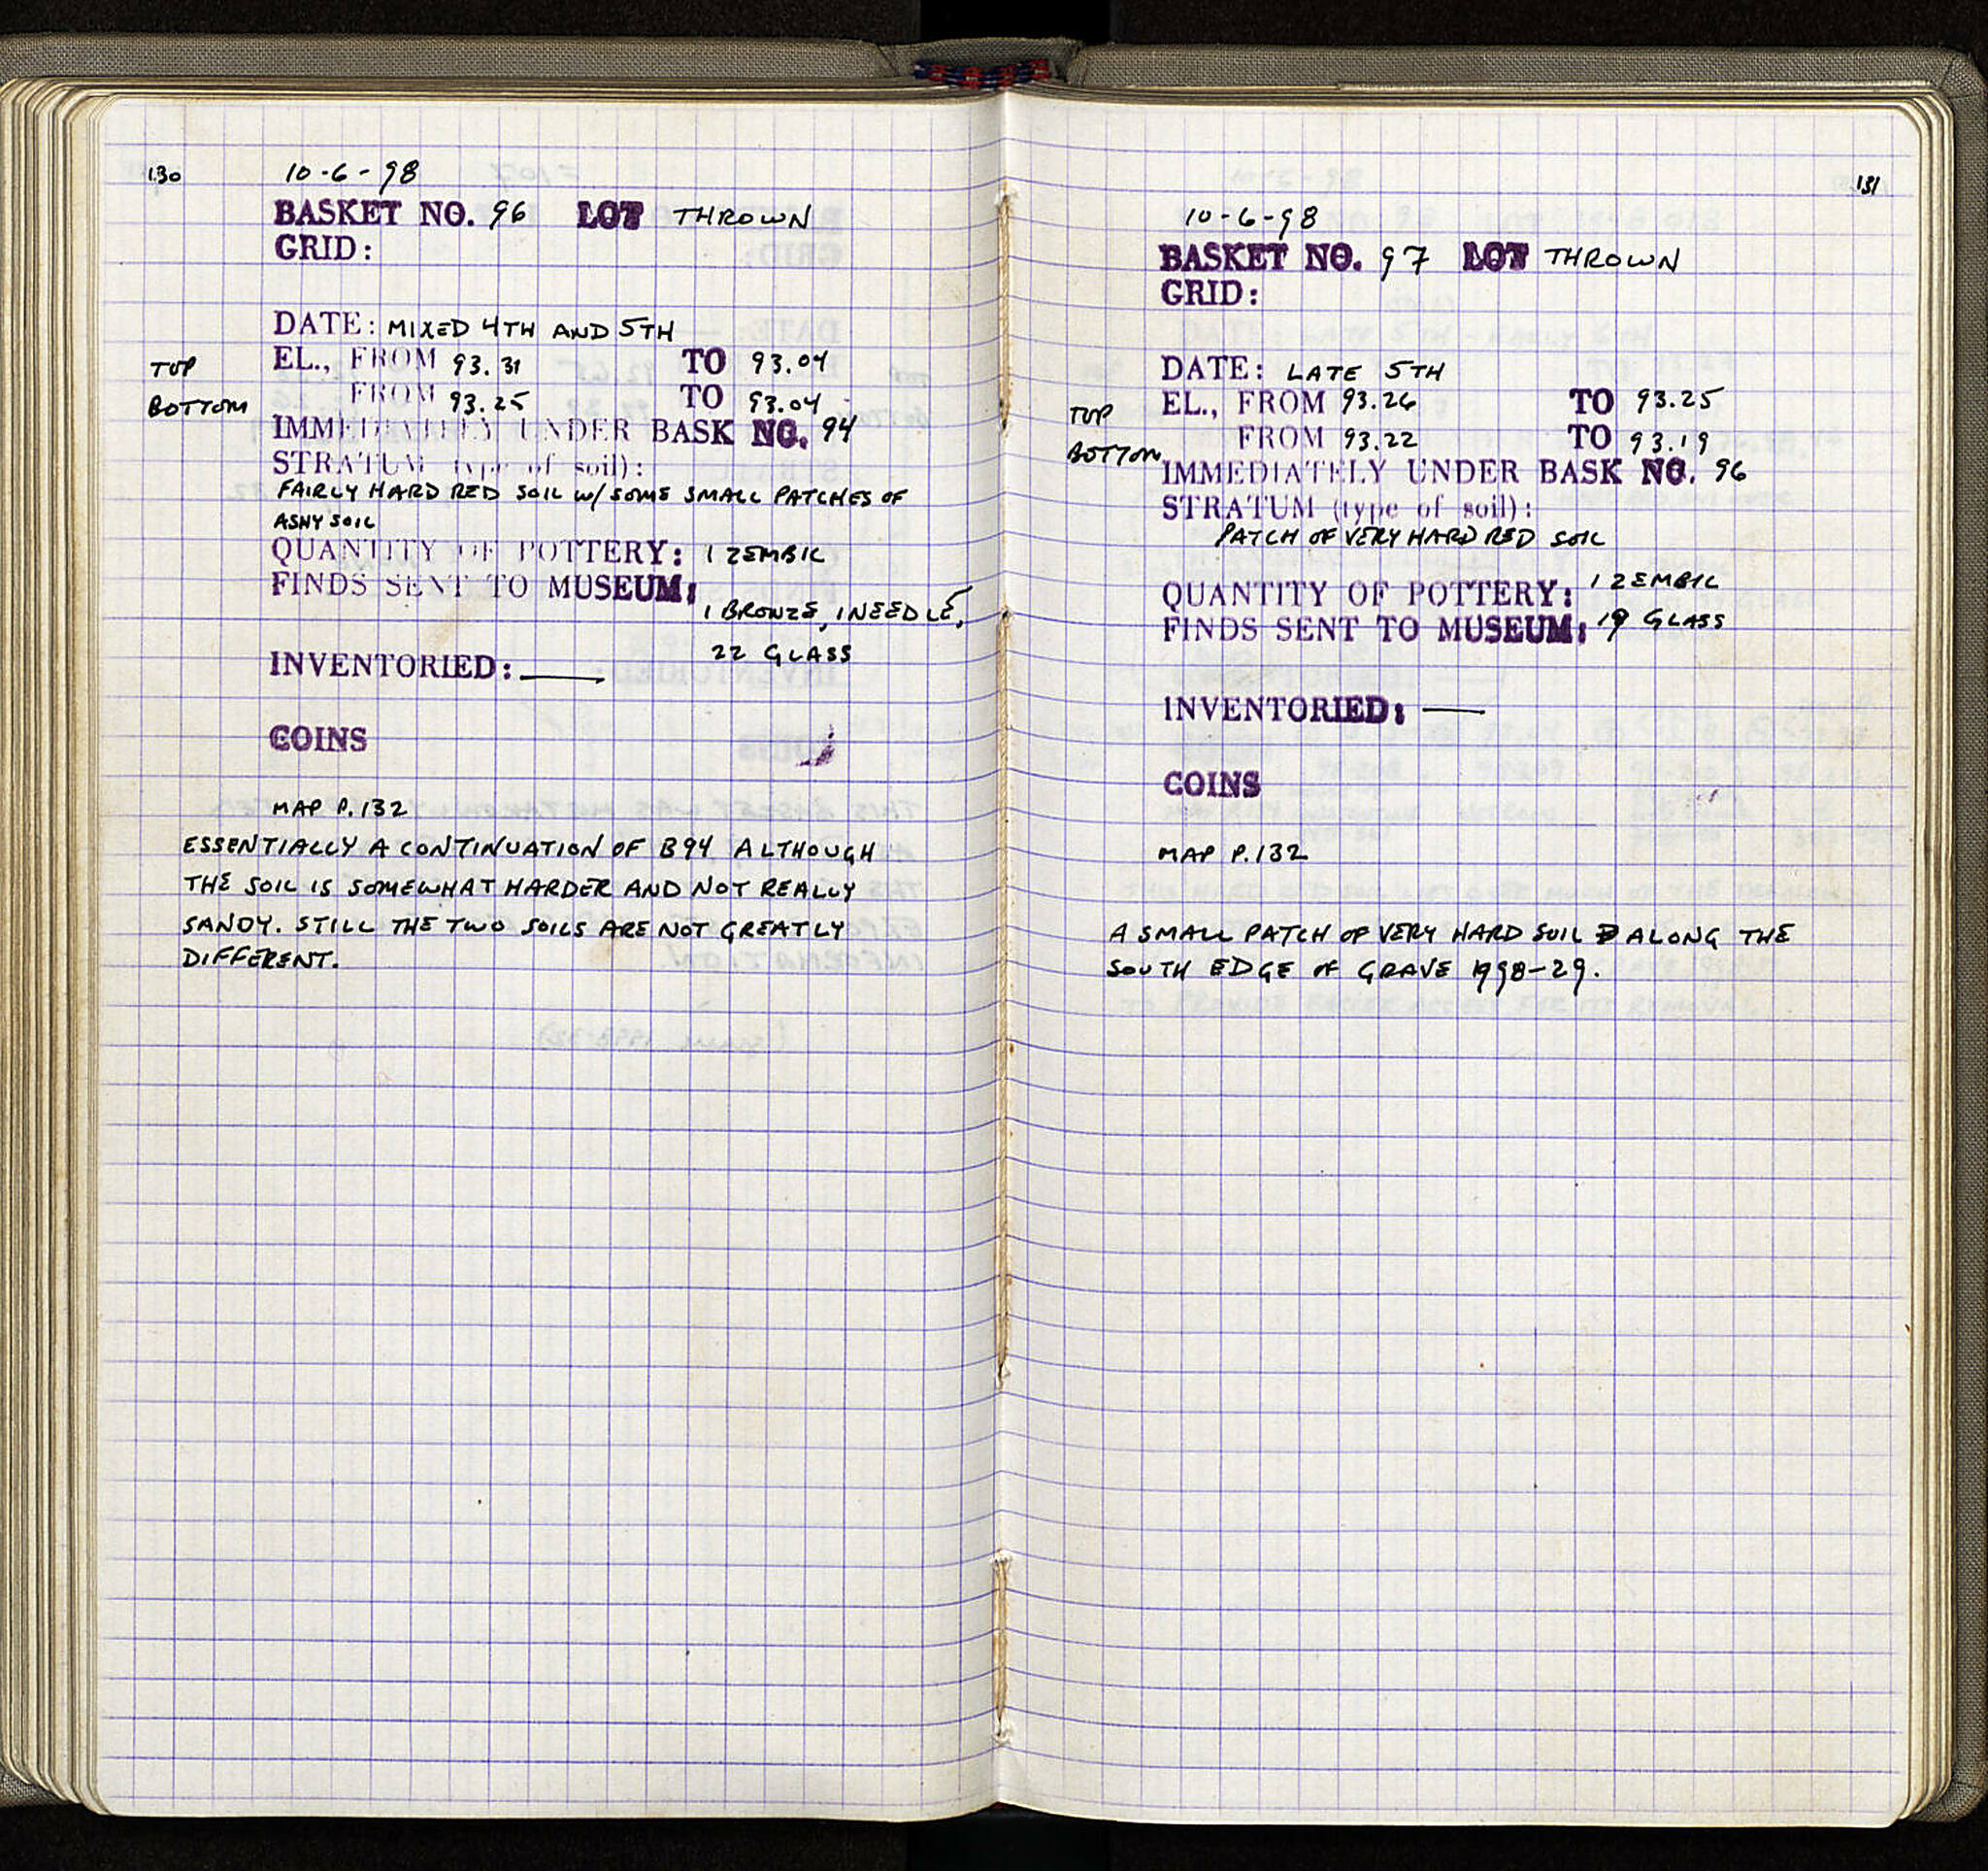 130
10-6-98
BASKET NO. 96 LOT THROWN
GRID:
DATE: MIXED 4TH AND 5TH
TOP EL., FROM 93.31 TO 93.04
BOTTOM FROM 93.25 TO 93.04
IMMEDIATELY UNDER BASK NO. 94
STRATUM (type of soil):
FAIRLY HARD RED SOIL W/SOME SMALL PATCHES OF
ASHY SOIL
QUANTITY OF POTTERY: 1 ZEMBIL
FINDS SENT TO MUSEUM:
1 BRONZE, 1 NEEDLE,
22 GLASS
INVENTORIED: —
COINS
MAP P.132
ESSENTIALLY A CONTINUATION OF B94 ALTHOUGH
THE SOIL IS SOMEWHAT HARDER AND NOT REALLY
SANDY. STILL THE TWO SOILS ARE NOT GREATLY
DIFFERENT.
131
10-6-98
BASKET NO. 97 LOT THROWN
GRID:
DATE: LATE 5TH
TOP EL., FROM 93.26 TO 93.25
BOTTOM FROM 93.22 TO 93.19
IMMEDIATELY UNDER BASK NO. 96
STRATUM (type of soil):
PATCH OF VERY HARD RED SOIL
QUANTITY OF POTTERY: 1 ZEMBIL
FINDS SENT TO MUSEUM: 19 GLASS
INVENTORIED: —
COINS
MAP P.132
A SMALL PATCH OF VERY HARD SOIL ALONG THE
SOUTH EDGE OF GRAVE 1998-29.